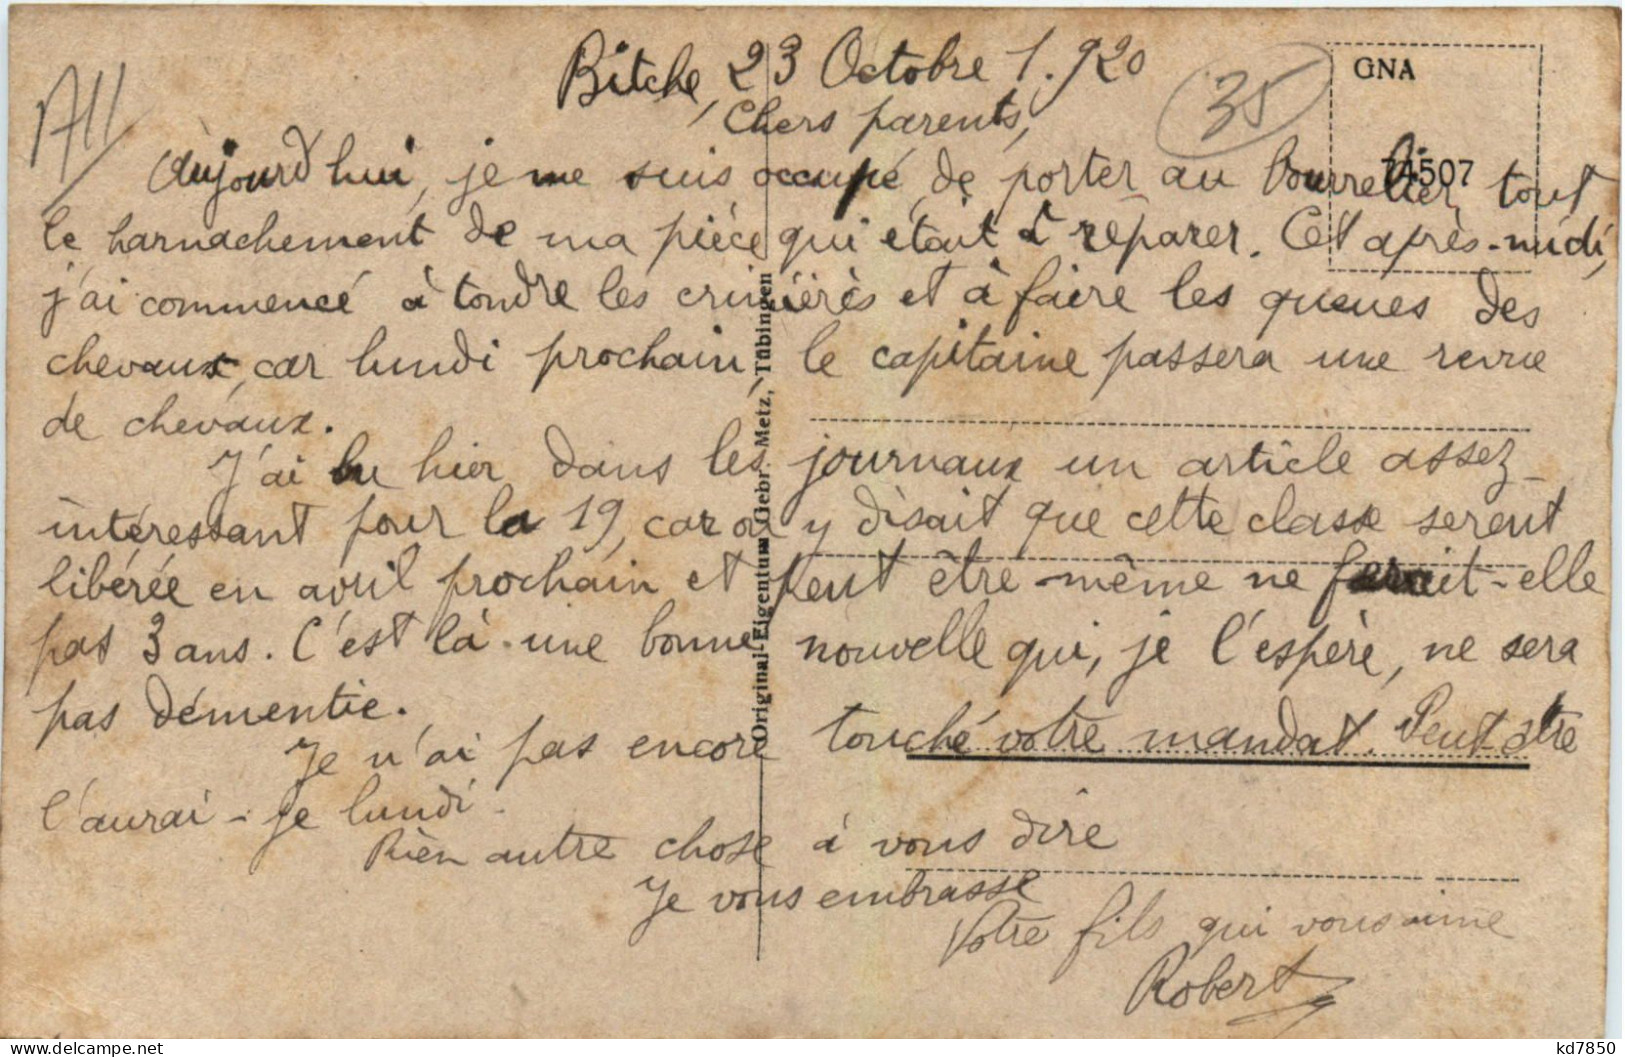 Bitche, 23 Octobre 1.920
35
GNA
A11
Chers parents,
Aujourd'hui, je me suis occupé de porter au bourrelier tout
74507
le harnachement de ma pièce qui était à réparer. Cet après-midi,
j'ai commencé à tondre les crinières et à faire les queues des
chevaux, car lundi prochain, le capitaine passera une revue
de chevaux.
J'ai lu hier dans les journaux un article assez
intéressant pour la 19, car on y disait que cette classe serent
libérée en avril prochain et peut être-même ne ferait-elle
pas 3 ans. C'est là une bonne nouvelle qui, je l'espère, ne sera
pas démentie.
Je n'ai pas encore touché votre mandat. Peut-être
l'aurai-je lundi.
Rien autre chose à vous dire
Je vous embrasse
Votre fils qui vous aime
Robert
Original-Eigentum Gebr. Metz, Tübingen
kd7850